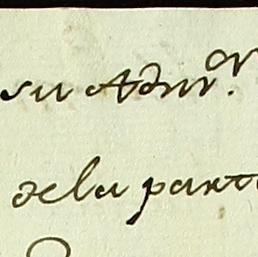 su Admor.
de la parte